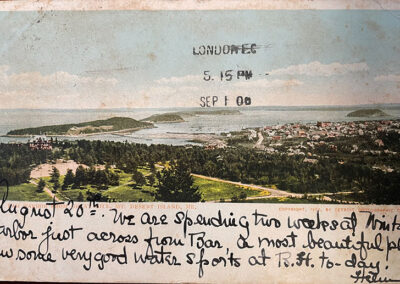 LONDON E.C
5. 15 PM
SEP 1 00
MT. DESERT ISLAND, ME.
COPYRIGHT, BY DETROIT
August 20th. We are spending two weeks at
arbor just across from Bar, a most beautiful pl
w some very good water sports at B.H. to-day.
Helen